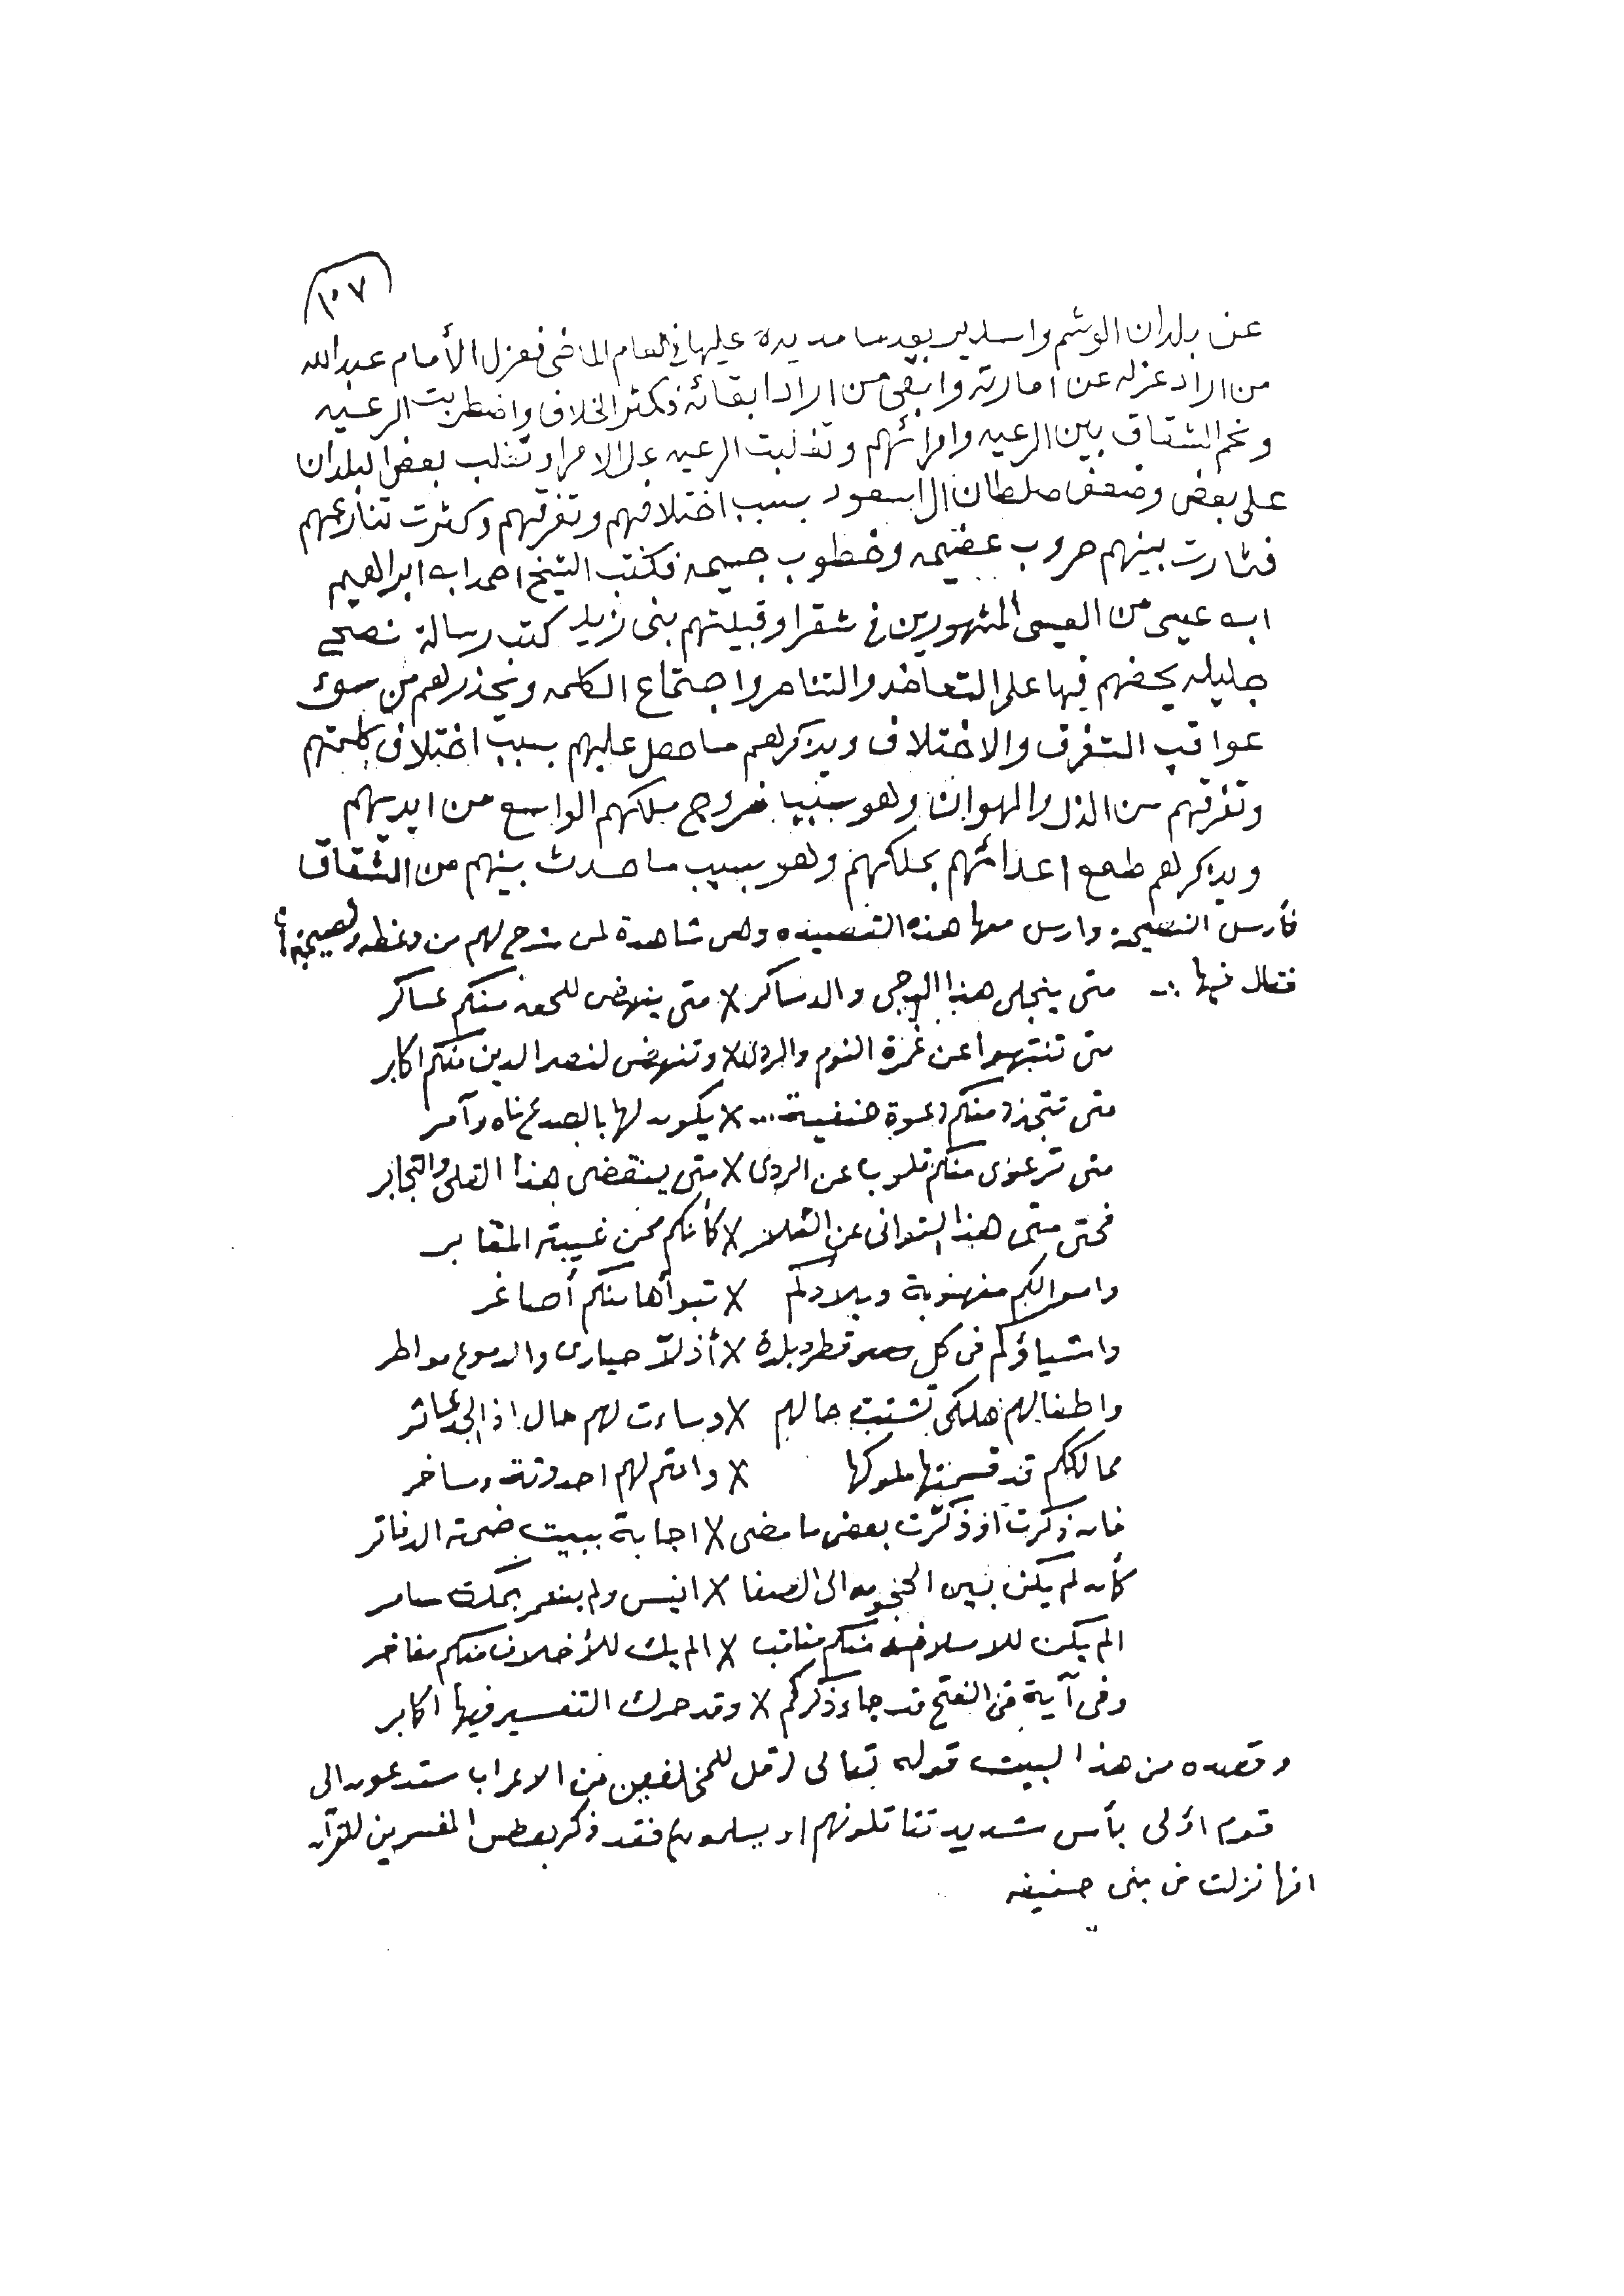 ١٠٧
عن بلدان الوشم واسدير بعد ما مد يده عليها في العام الماضي فعزل الأمام عبد الله
من اراد عزله عن امارته وابقى من اراد ابقائه فكثر الخلاف واضطربت الرعيه
ونجم الشقاق بين الرعيه وامرائهم وتغلبت الرعيه على الامراء وتغلب بعض البلدان
على بعض وضعف سلطان ال اسعود بسبب اختلافهم وتفرقهم وكثرت تنازعهم
فثارت بينهم حروب عضيمه وخطوب جسيمه فكتب الشيخ احمد ابن ابراهيم
ابن عيسى من العيسى المشهورين في شقرا وقبيلتهم بني زيد كتب رسالة نصحى
جليله يحضهم فيها على التعاضد والتناصر واجتماع الكلمه ويحذرهم من سوء
عواقب التفرق والاختلاف ويذكرهم ما حصل عليهم بسبب اختلاف كلمتهم
وتفرقهم من الذل والهوان وهو سببا خروج ملكهم الواسع من ايديهم
ويذكرهم طمع اعدائهم بملكهم وهو بسبب ما حدث بينهم من الشقاق
فأرسل النصيحة وارسل معها هذه القصيده وهى شاهدة لمن شرح لهم من وعظه ونصيحته
فقال فيها :- متى ينجلى هذا الدجى والدساكر × متى ينهض للحق منكم عساكر
متى تنتبهوا عن غمرة النوم والردى × وتنهض لنصر الدين منكم اكابر
متى تتجدد منكم دعوة حنفية... × يكون لها بالصدع ناه وآمر
متى ترعوى منكم قلوب عن الردى × متى ينقضى هذا القلى والتجابر
فحتى متى هذا التوانى عن العلا × كأنكم ممن غيبته المقابر
واموالكم منهوبة وبلادكم × تبوأها منكم أصاغر
واشياؤكم فى كل قطر وبلدة × أذلآ حيارى والدموع مواطر
واطفالهم هلكى تشتت حالهم × وساءت لهم حال اذ الجد عاثر
ممالككم قد قسمتها ملوكها × وانتم لهم احدوثة ومساخر
فان ذكرت اذ ذكرت بعض ما مضى × اجابة ببيت ضمته الدفاتر
كأن لم يكن بين الحجون الى الصفا × انيس ولم يسمر بمكت سامر
الم يكن للاسلاف منكم مناقب × الم يك للأخلاف منكم مفاخر
وفى آية فى الفتح قد جاء ذكركم × وقد حرك التفسير فيها اكابر
وقصده من هذا البيت قوله تعالى (قل للمخلفين من الاعراب ستدعون الى
قوم اؤلى بأس شديد تقاتلونهم او يسلمون) فقد ذكر بعض المفسرين للقرآن
انها نزلت فى بنى حنيفه